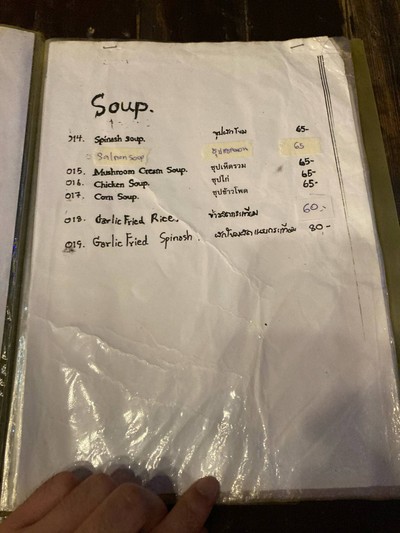 Soup.
014. Spinash soup. ซุปผักโขม 65-
Salmon Soup ซุปแซลมอน 65
015. Mushroom Cream Soup. ซุปเห็ดรวม 65-
016. Chicken Soup. ซุปไก่ 65-
017. Corn Soup. ซุปข้าวโพด 65-
018. Garlic Fried Rice. ข้าวผัดกระเทียม 60.-
019. Garlic Fried Spinash. ผักโขมผัดเนยกระเทียม 80.-